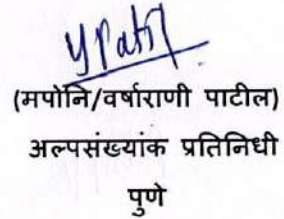 YPatil
(मपोनि/वर्षाराणी पाटील)
अल्पसंख्यांक प्रतिनिधी
पुणे